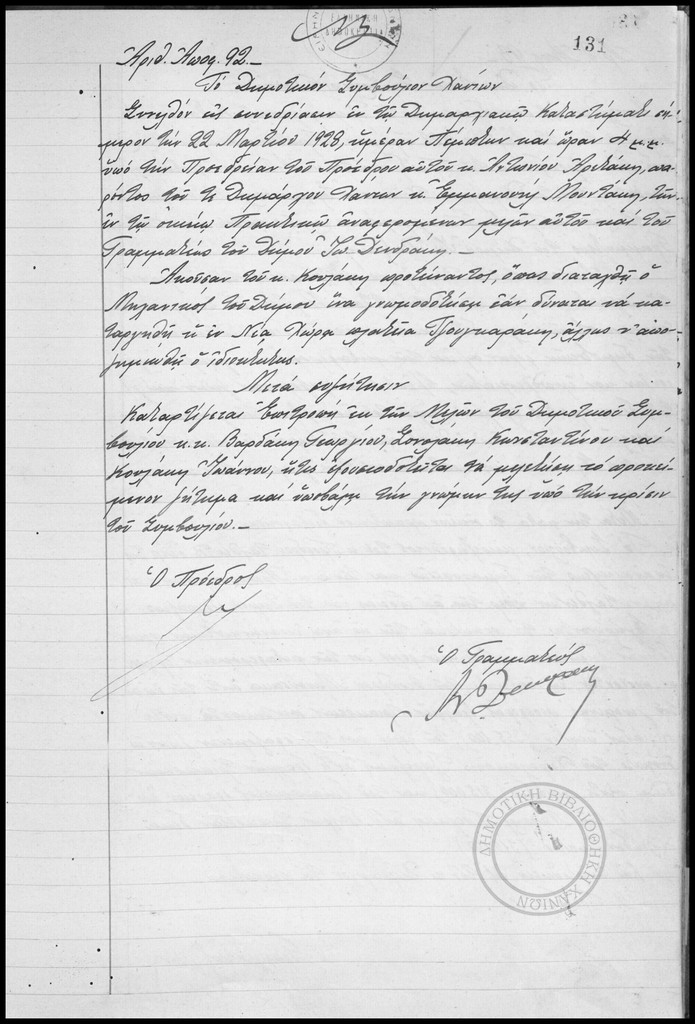 131
Ἀριθ. Ἀποφ. 92.—
Τό Δημοτικόν Συμβούλιον Χανίων
Συνελθόν εἰς συνεδρίασιν ἐν τῷ Δημαρχιακῷ Καταστήματι σή-
μερον τήν 22 Μαρτίου 1928, ἡμέραν Πέμπτην καί ὥραν 4 μ.μ.
ὑπό τήν Προεδρείαν τοῦ Προέδρου αὐτοῦ κ. Ἀντωνίου Ἀρετάκη, πα-
ρόντος τοῦ τε Δημάρχου Χανίων κ. Ἐμμανουήλ Μουντάκη, τῶν
ἐν τῷ οἰκείῳ Πρακτικῷ ἀναφερομένων μελῶν αὐτοῦ καί τοῦ
Γραμματέως τοῦ Δήμου Ἰω. Δενδράκη.—
Ἀκοῦσαν τοῦ κ. Κουλάκη προτείναντος, ὅπως διαταχθῇ ὁ
Μηχανικός τοῦ Δήμου ἵνα γνωμοδοτήσῃ ἐάν δύναται νά κα-
ταργηθῇ ἡ ἐν Νέᾳ Χώρᾳ πλατεῖα ἄλλως ν' ἀπο-
ζημιωθῇ ὁ ἰδιοκτήτης.
Μετά συζήτησιν
Καταρτίζεται Ἐπιτροπή ἐκ τῶν Μελῶν τοῦ Δημοτικοῦ Συμ-
βουλίου κ.κ. Βαρδάκη Γεωργίου, Κωνσταντίνου καί
Κουλάκη Ἰωάννου, ἥτις ἐξουσιοδοτεῖται νά μελετήσῃ τό προκεί-
μενον ζήτημα καί ὑποβάλῃ τήν γνώμην της ὑπό τήν κρίσιν
τοῦ Συμβουλίου.—
Ὁ Πρόεδρος
Ὁ Γραμματεύς
ΔΗΜΟΤΙΚΗ ΒΙΒΛΙΟΘΗΚΗ ΧΑΝΙΩΝ